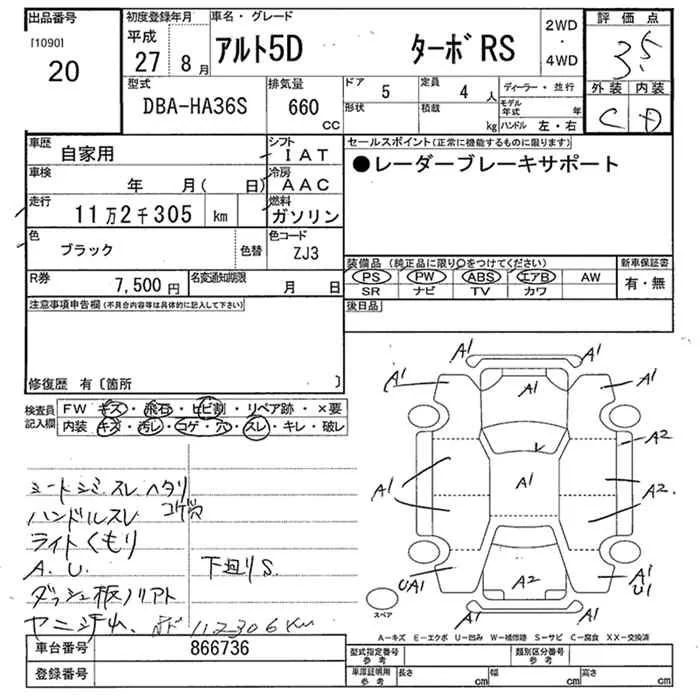 出品番号
[1090]
20
初度登録年月
平成
27
8月
車名・グレード
アルト5D ターボRS
2WD
・
4WD
評価点
3.5
外装 内装
C D
型式
DBA-HA36S
排気量
660
CC
ドア
5
定員
4人
形状
積載
kg
ディーラー・並行
モデル年式 年
ハンドル 左・右
車歴
自家用
シフト
IAT
車検
年 月( 日)
冷房
AAC
走行
11万2千305 km
燃料
ガソリン
色
ブラック
色替
色コード
ZJ3
R券
7,500円
名変通知期限
月 日
セールスポイント(正常に機能するものに限ります)
●レーダーブレーキサポート
装備品(純正品に限り○をつけてください)
PS PW ABS エアB AW
SR ナビ TV カワ
新車保証書
有・無
後日品
注意事項申告欄(不具合内容等は具体的に記入して下さい)
修復歴 有〔箇所 〕
検査員記入欄
FW キズ・飛石・ヒビ割・リペア跡・×要
内装 キズ・汚レ・コゲ・穴・スレ・キレ・破レ
シートシミ.スレ ヘタリ
コゲ穴
ハンドルスレ
ライトくもり
A.U.
下廻りS.
ダッシュ板ノリアト
ヤニジム.
112306km
A1
A1
A1
A1
A1
A1
A2
A1
A1
A2
UA1
A2
A1
U1
スペア
A−キズ E−エクボ U−凹み W−補修跡 S−サビ C−腐食 XX−交換済
車台番号
866736
登録番号
型式指定番号
参考
類別区分番号
参考
車庫証明用
参考
長さ cm
幅 cm
高さ cm